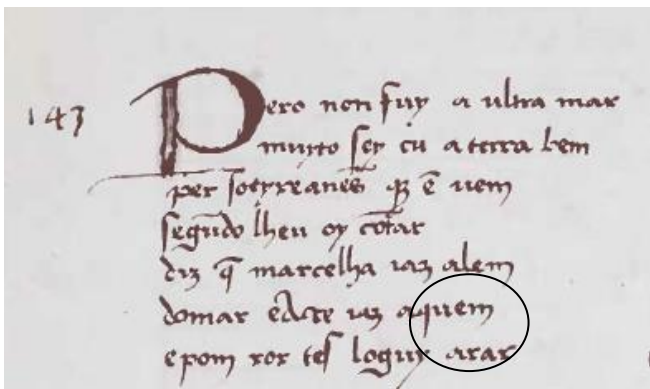 143
Pero non fuy a ultra mar
muyto sey eu a terra bem
per soeyreanes q̄ ē uem
segūdo lheu oy cōtar
diz q̄ marcelha iaz alem
domar eAcre iaz aquem
epom ror tes loguy arar